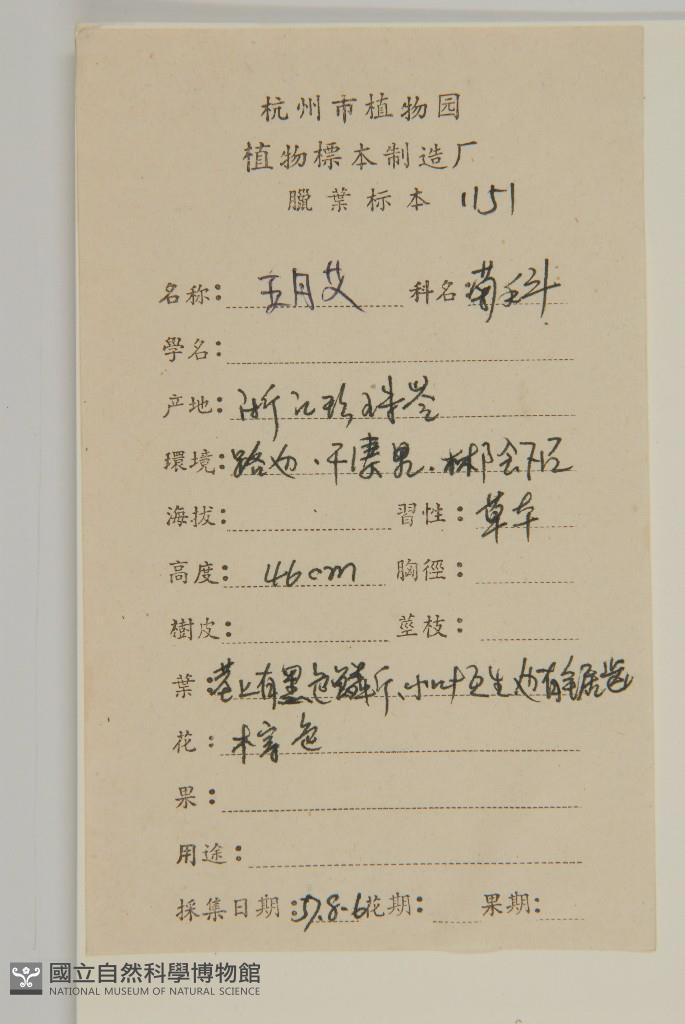 杭州市植物园
植物標本制造厂
臘葉标本 1151
名称: 五月艾 科名: 菊科
學名:
产地: 浙江珍珠岺
環境: 路边.干
海拔: 習性: 草本
高度: 46cm 胸徑:
樹皮: 莖枝:
葉: 上有黑色鳞片、小叶互生边有鋸齿
花: 色
果:
用途:
採集日期: 57.8-6 花期: 果期:
國立自然科學博物館
NATIONAL MUSEUM OF NATURAL SCIENCE